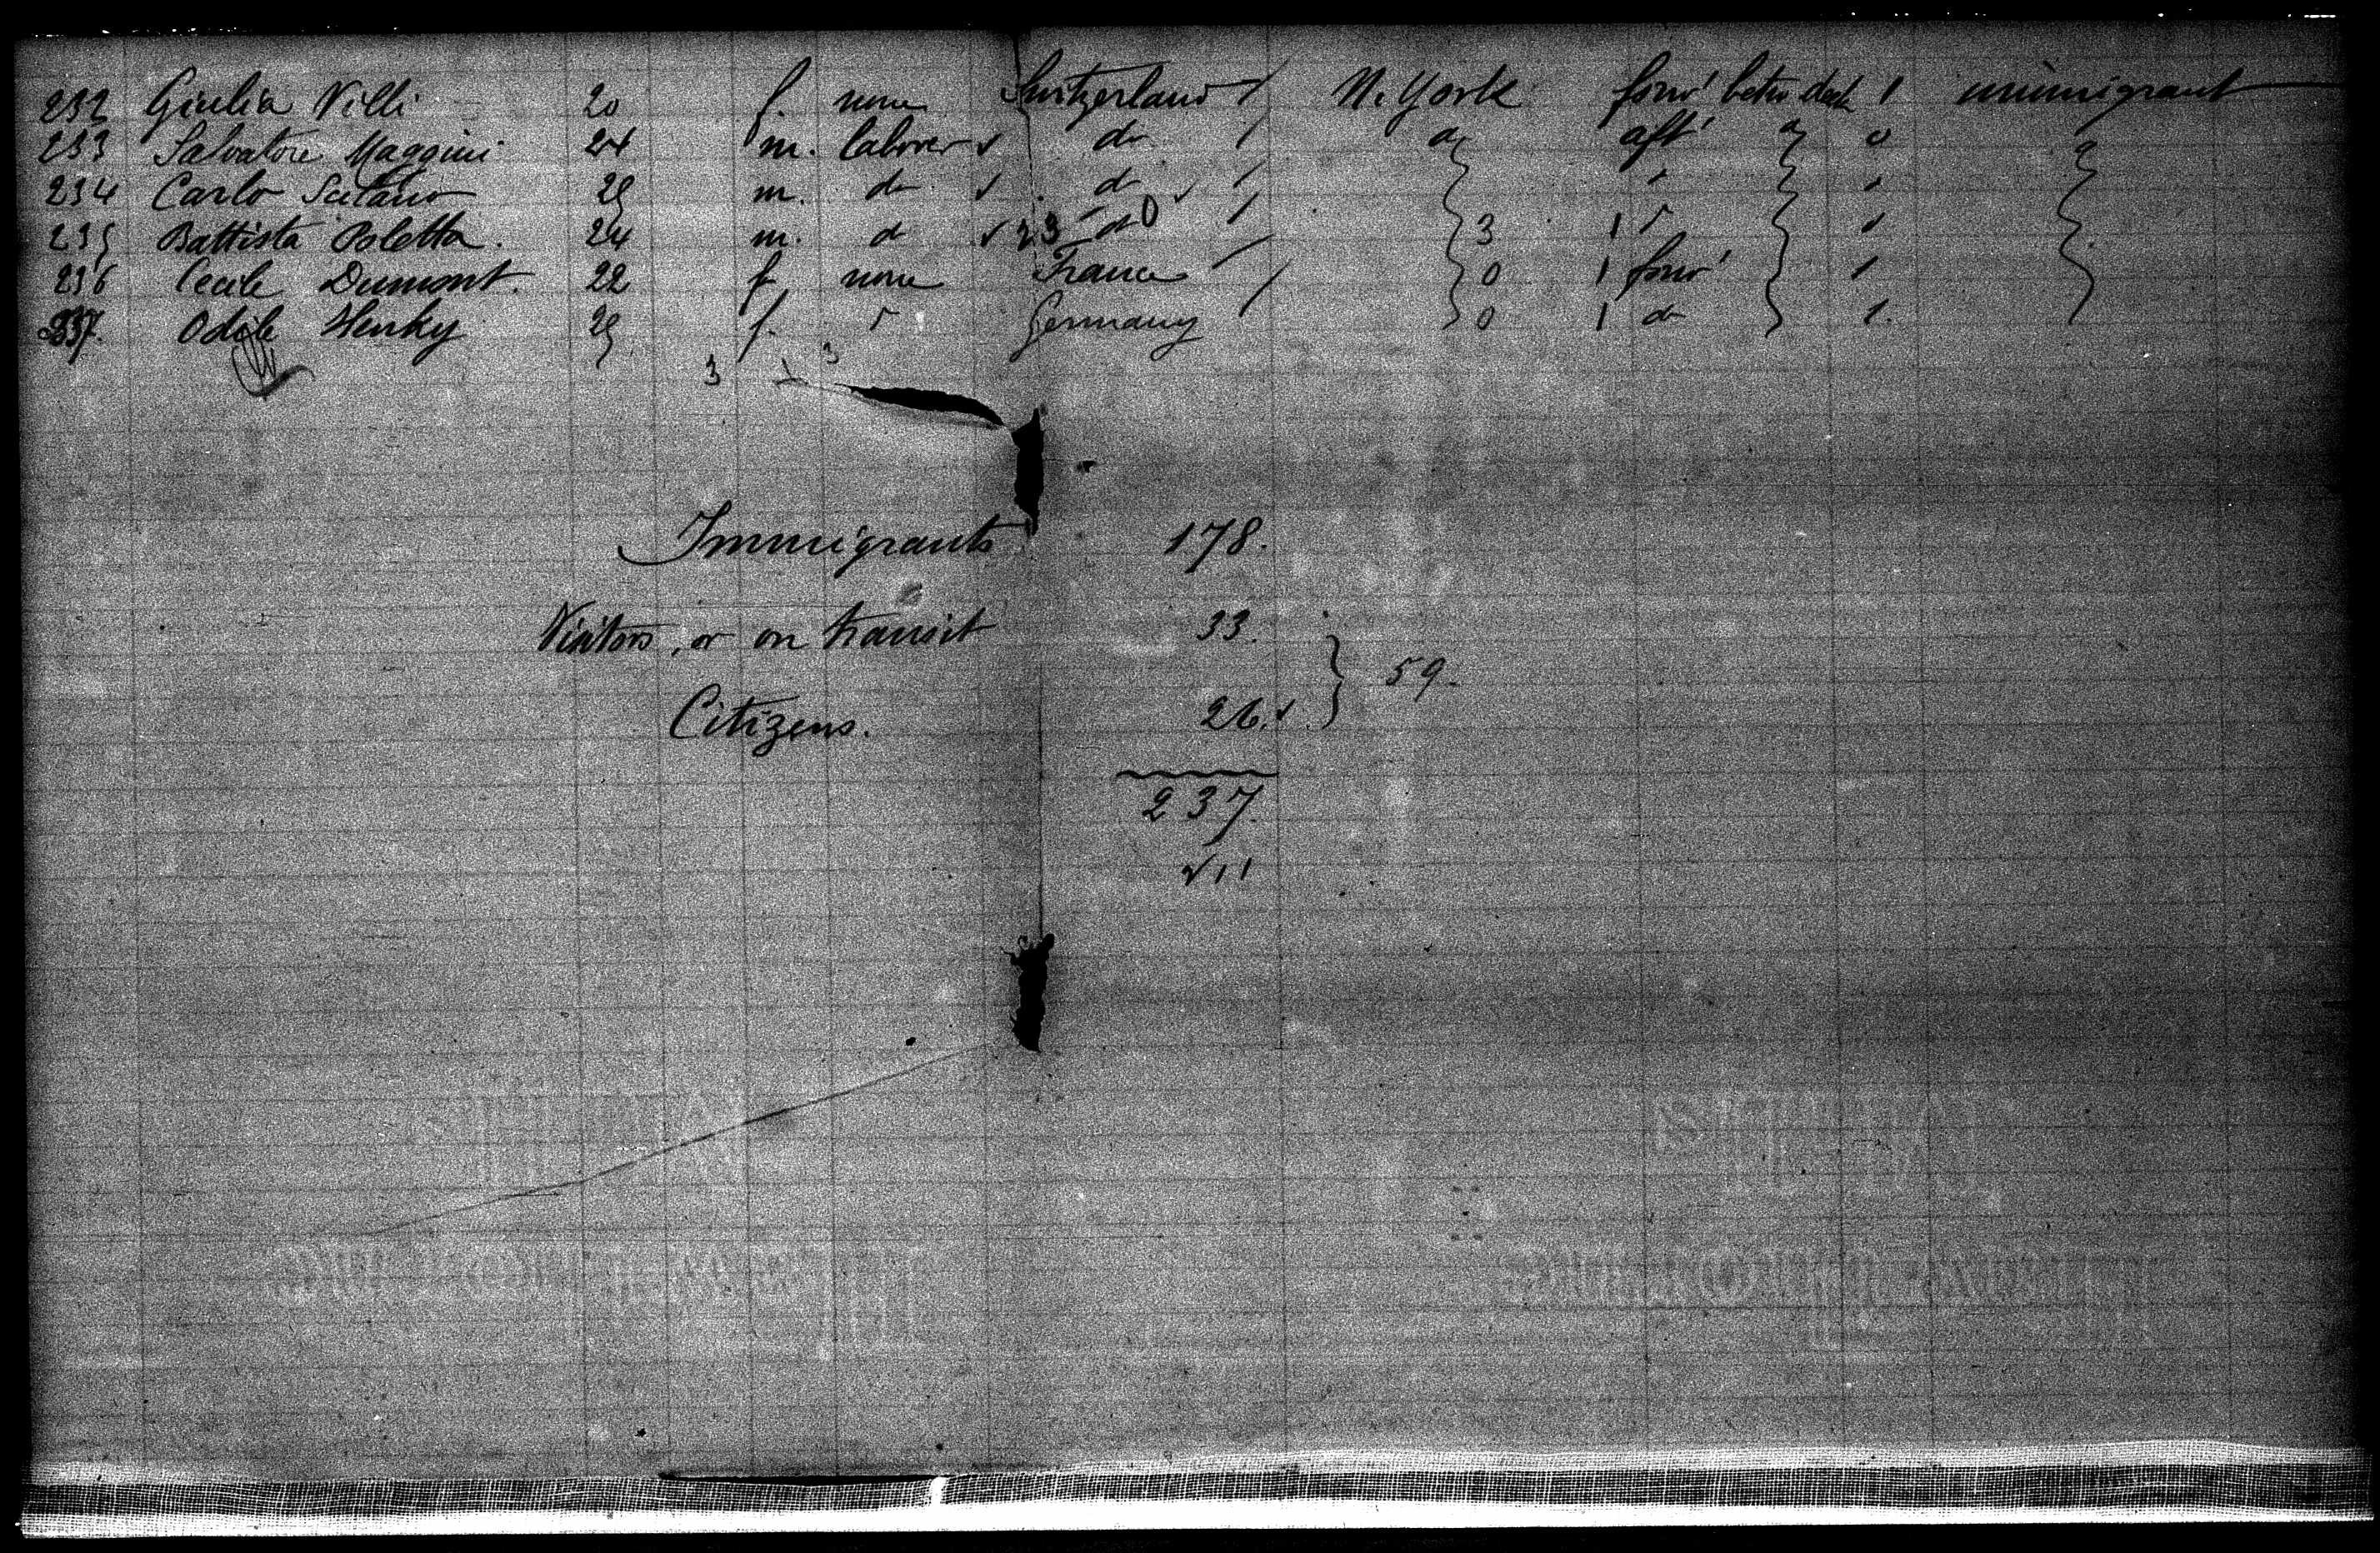 232 Giulia Villi 20 f. none Switzerland / N. York forw' betw deck 1 immigrant
233 Salvatore Maggini 24 m. labrer ✓ do / aft' 0
234 Carlo 29 m. do ✓ do ✓ /
235 Battista Poletta. 24 m. d ✓ 23 do 0 / 3 1 "
236 Cecile Dumont. 22 f. none France / 0 1 forw' 1
237. Odile Henky 29 f. " Germany / 0 1 do 1.
3 1 3
Immigrants 178.
Visitors, or on transit 33.
59.
Citizens. 26. ✓
237.